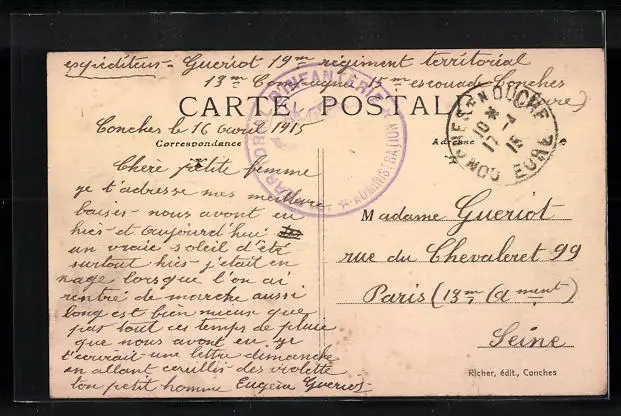 expéditeur - Gueriot 19me régiment territorial
13me Compagnie 15me escouade Conches
(Eure)
CARTE POSTALE
Conches le 16 avril 1915
Correspondance
Adresse
D'INFANTERIE
ADMINISTRATION
CONCHES-EN-OUCHE
EURE
17 10
15
Chère petite femme
je t'adresse mes meilleurs
baisers nous avont eu
hier et aujourd'hui
un vraie soleil d'été
surtout hier j'était en
nage lorsque l'on ai
rentré de marche aussi
long est bien mieux que
pas tout ces temps de pluie
que nous avont eu je
t'écrirait une lettre dimanche
en allant ceuillis des violette
ton petit homme Eugène Gueriot
Madame Gueriot
rue du Chevaleret 99
Paris (13me (Ament)
Seine
Richer, édit., Conches